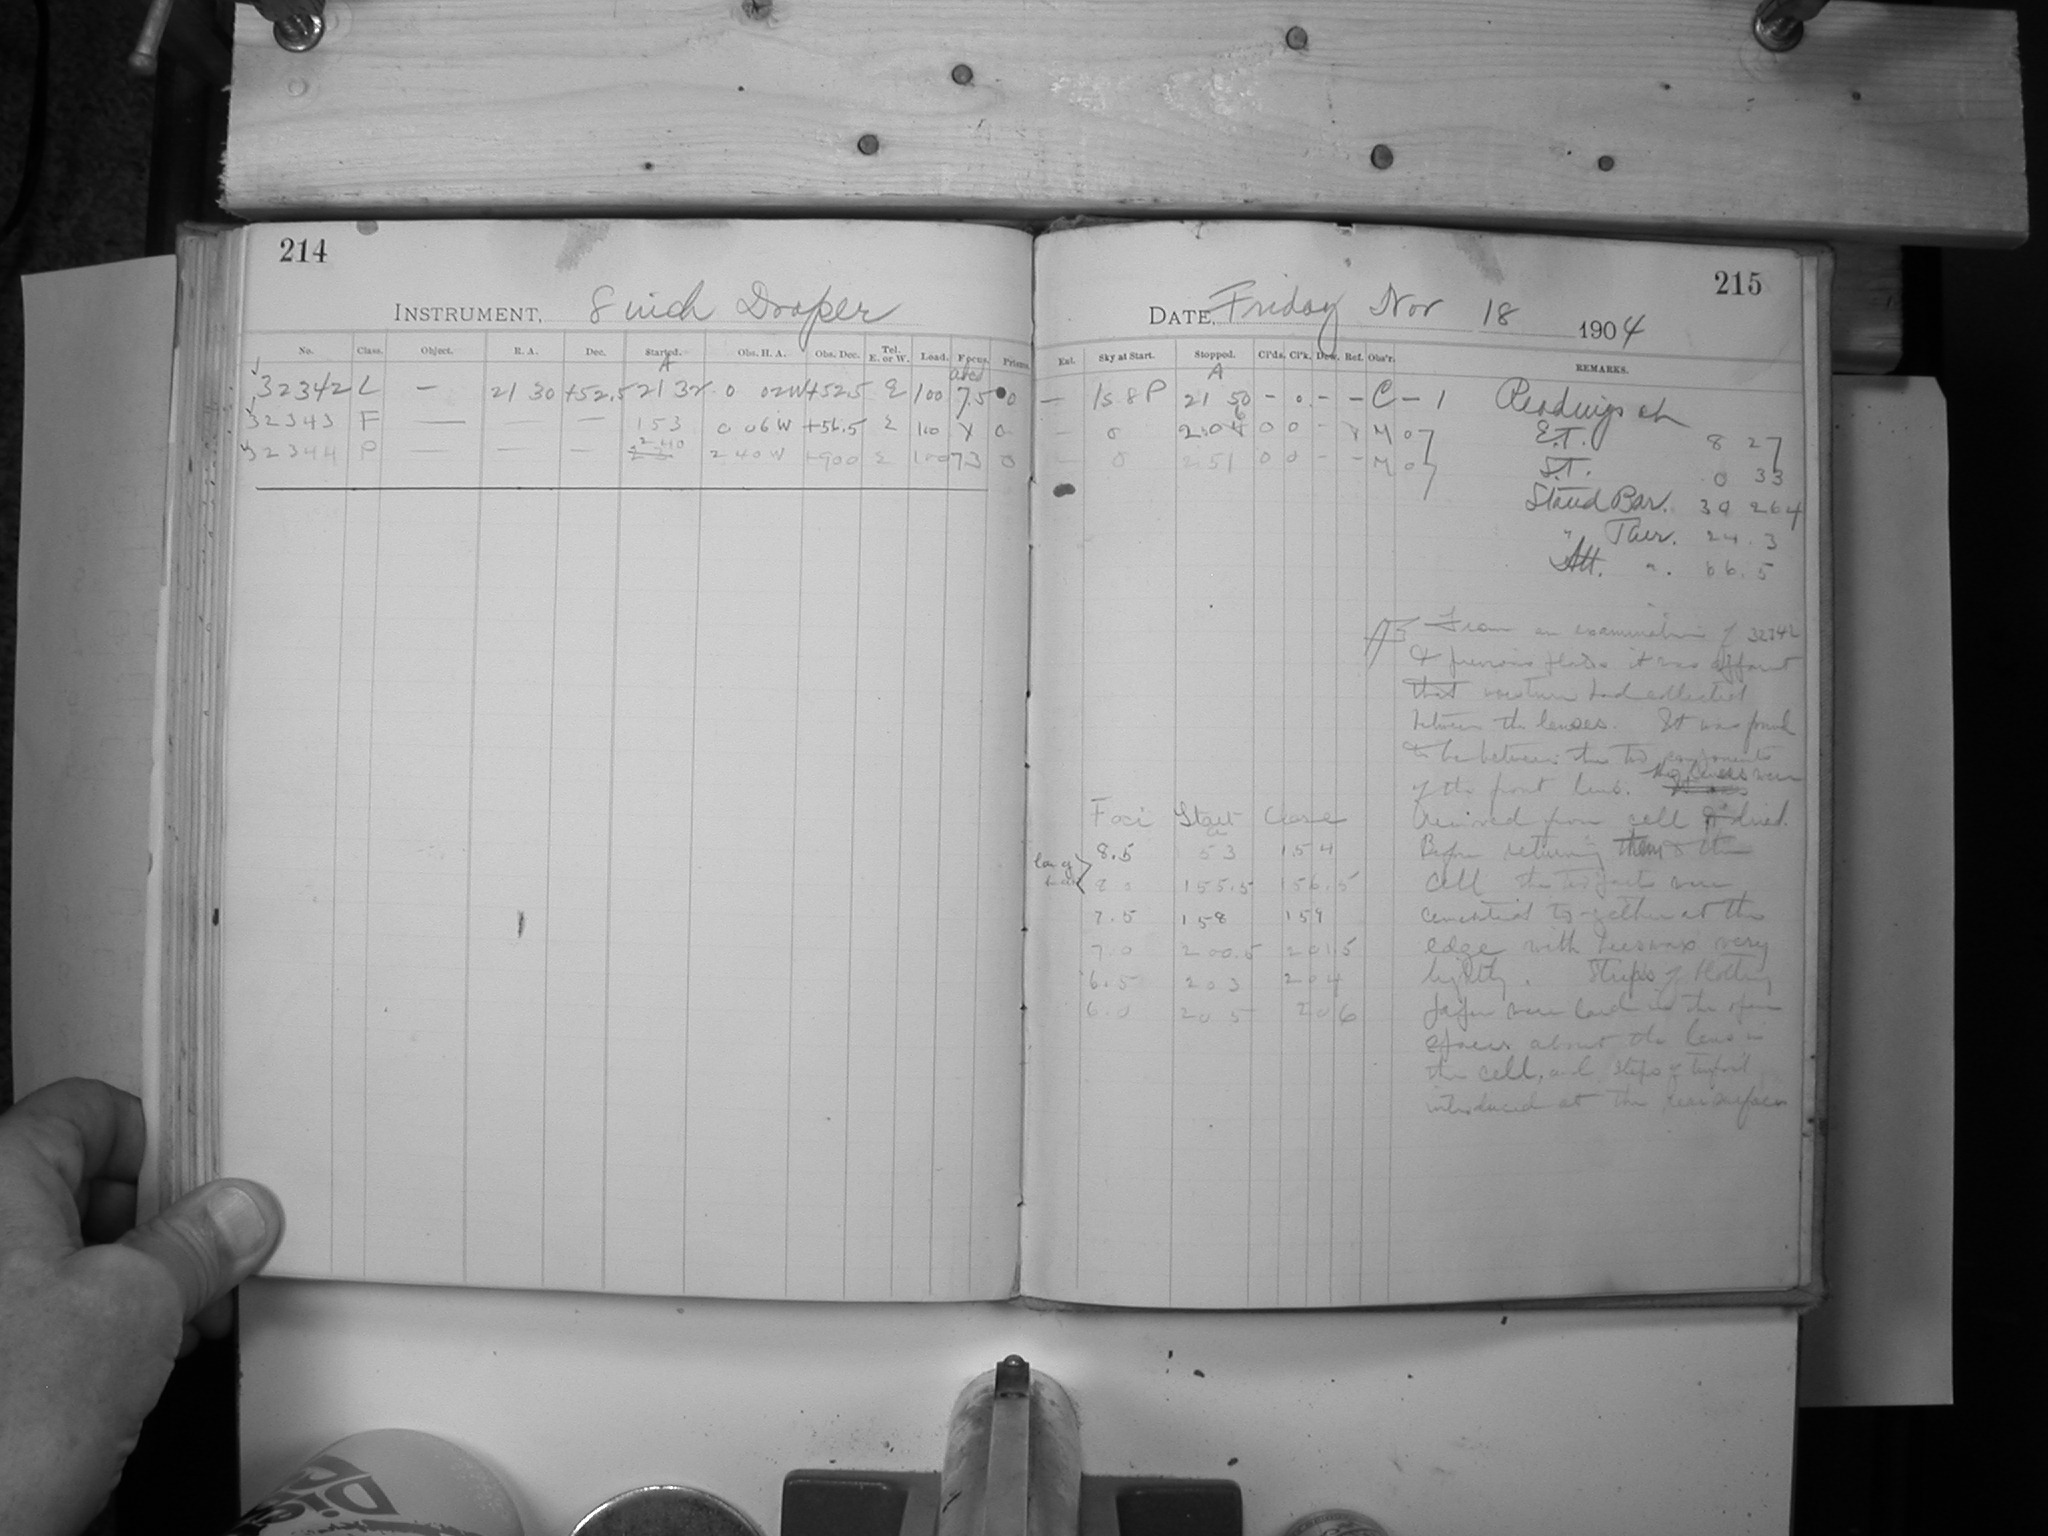 214
INSTRUMENT, 8 inch Draper
No. Class. Object. R. A. Dec. Started. Obs. H. A. Obs. Dec. Tel. E. or W. Load. Focus. Prisms
A
32342 L — 21 30 +52.5 21 32 0 02W +52.5 E 100 7.5 0
32343 F — — — 153 0 06 W +56.5 E 100 Y 0
32344 P — — — 2 40 2 40 W +900 E 100 73 0
215
DATE, Friday Nov 18 1904
Ext. Sky at Start. Stopped. Cl'ds. Cl'k. Dew. Ref. Obs'r. REMARKS.
A
— 1s 8 P 21 50 - 0 - - C - 1
— 0 2.06 0 0 - Y M 07
— 0 2.51 0 0 - - M 0
Readings at
E.T. 8 27
S.T. 0 33
Stand Bar. 30 264
" Ther. 24.3
Att. ". 66.5
From an examination of 32342
& previous plates it was apparent
that moisture had collected
between the lenses. It was found
to be between the two components
of the front lens. The lenses were
removed from cell & dried.
Before returning them to the
cell the two parts were
cemented together at the
edge with beeswax very
lightly. Strips of blotting
paper were laid in the open
spaces about the lens in
the cell, and strips of tinfoil
introduced at the rear surface
Foci Start Close
8.5 53 154
8 0 155.5 156.5
7.5 158 159
7.0 200.5 201.5
6.5 203 204
6.0 205 206
Diet